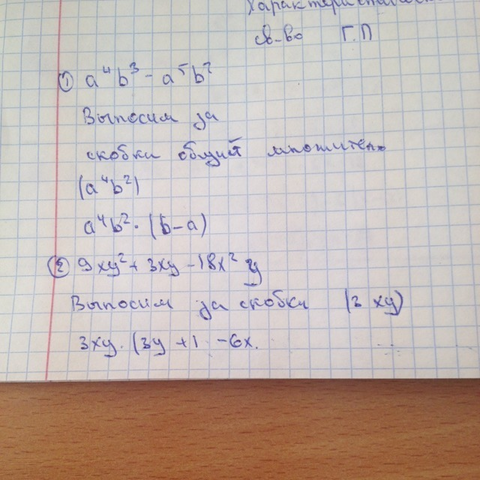 Характеристическое
св-во Г.П
① a⁴b³ - a⁵b²
Выносим за
скобки общий множитель
(a⁴b²)
a⁴b² · (b-a)
② 9xy² + 3xy - 18x²y
Выносим за скобки (3xy)
3xy · (3y + 1 - 6x.